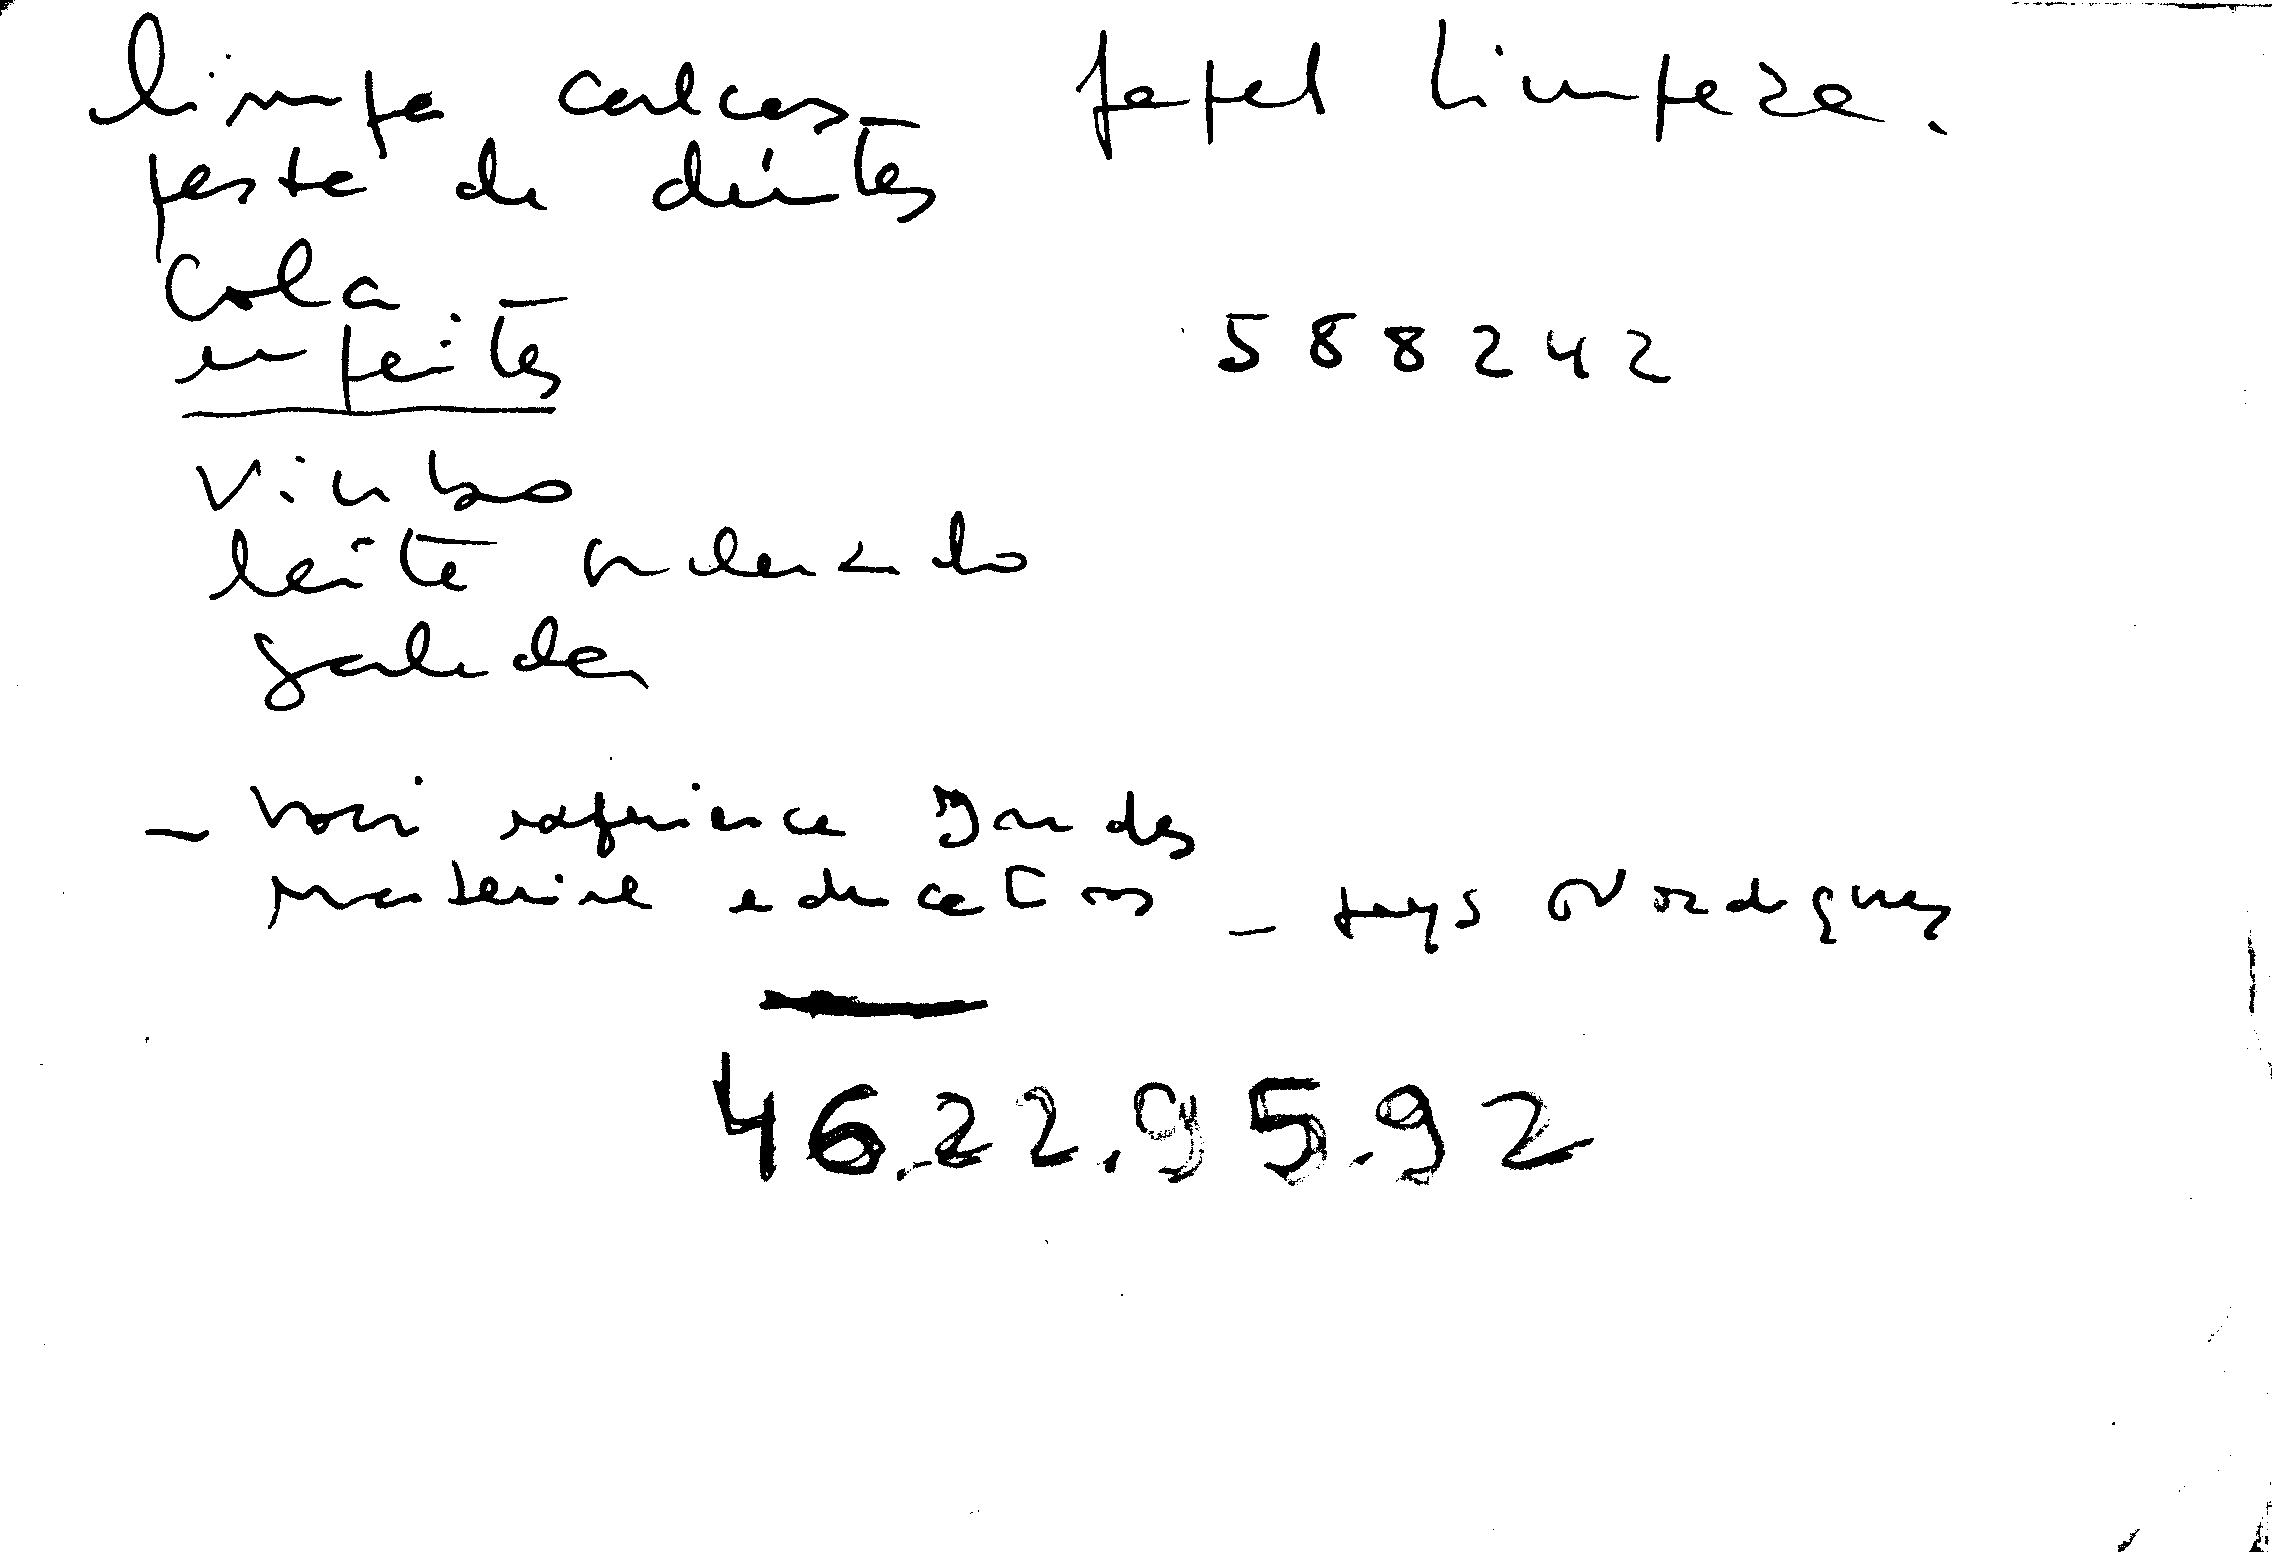 limpa calcos papel limpeza.
pasta de dentes
Cola
enfeites
588242
Vinho
leite
salada
- voir expérience Indes
matériel education - pays Nordiques
46.22.95.92